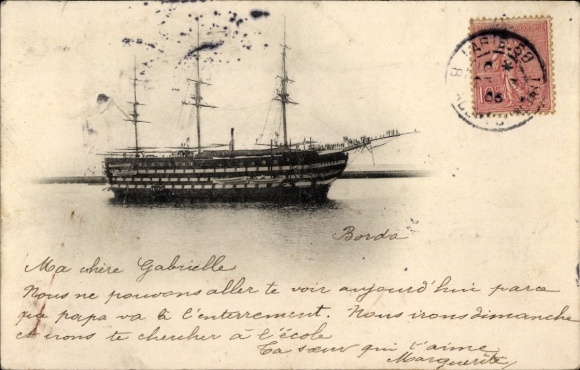 PARIS
05
Borda
Ma chère Gabrielle
Nous ne pouvons aller te voir aujourd'hui parce
que papa va à l'enterrement. Nous irons dimanche
et irons te chercher à l'école
Ta sœur qui t'aime
Marguerite